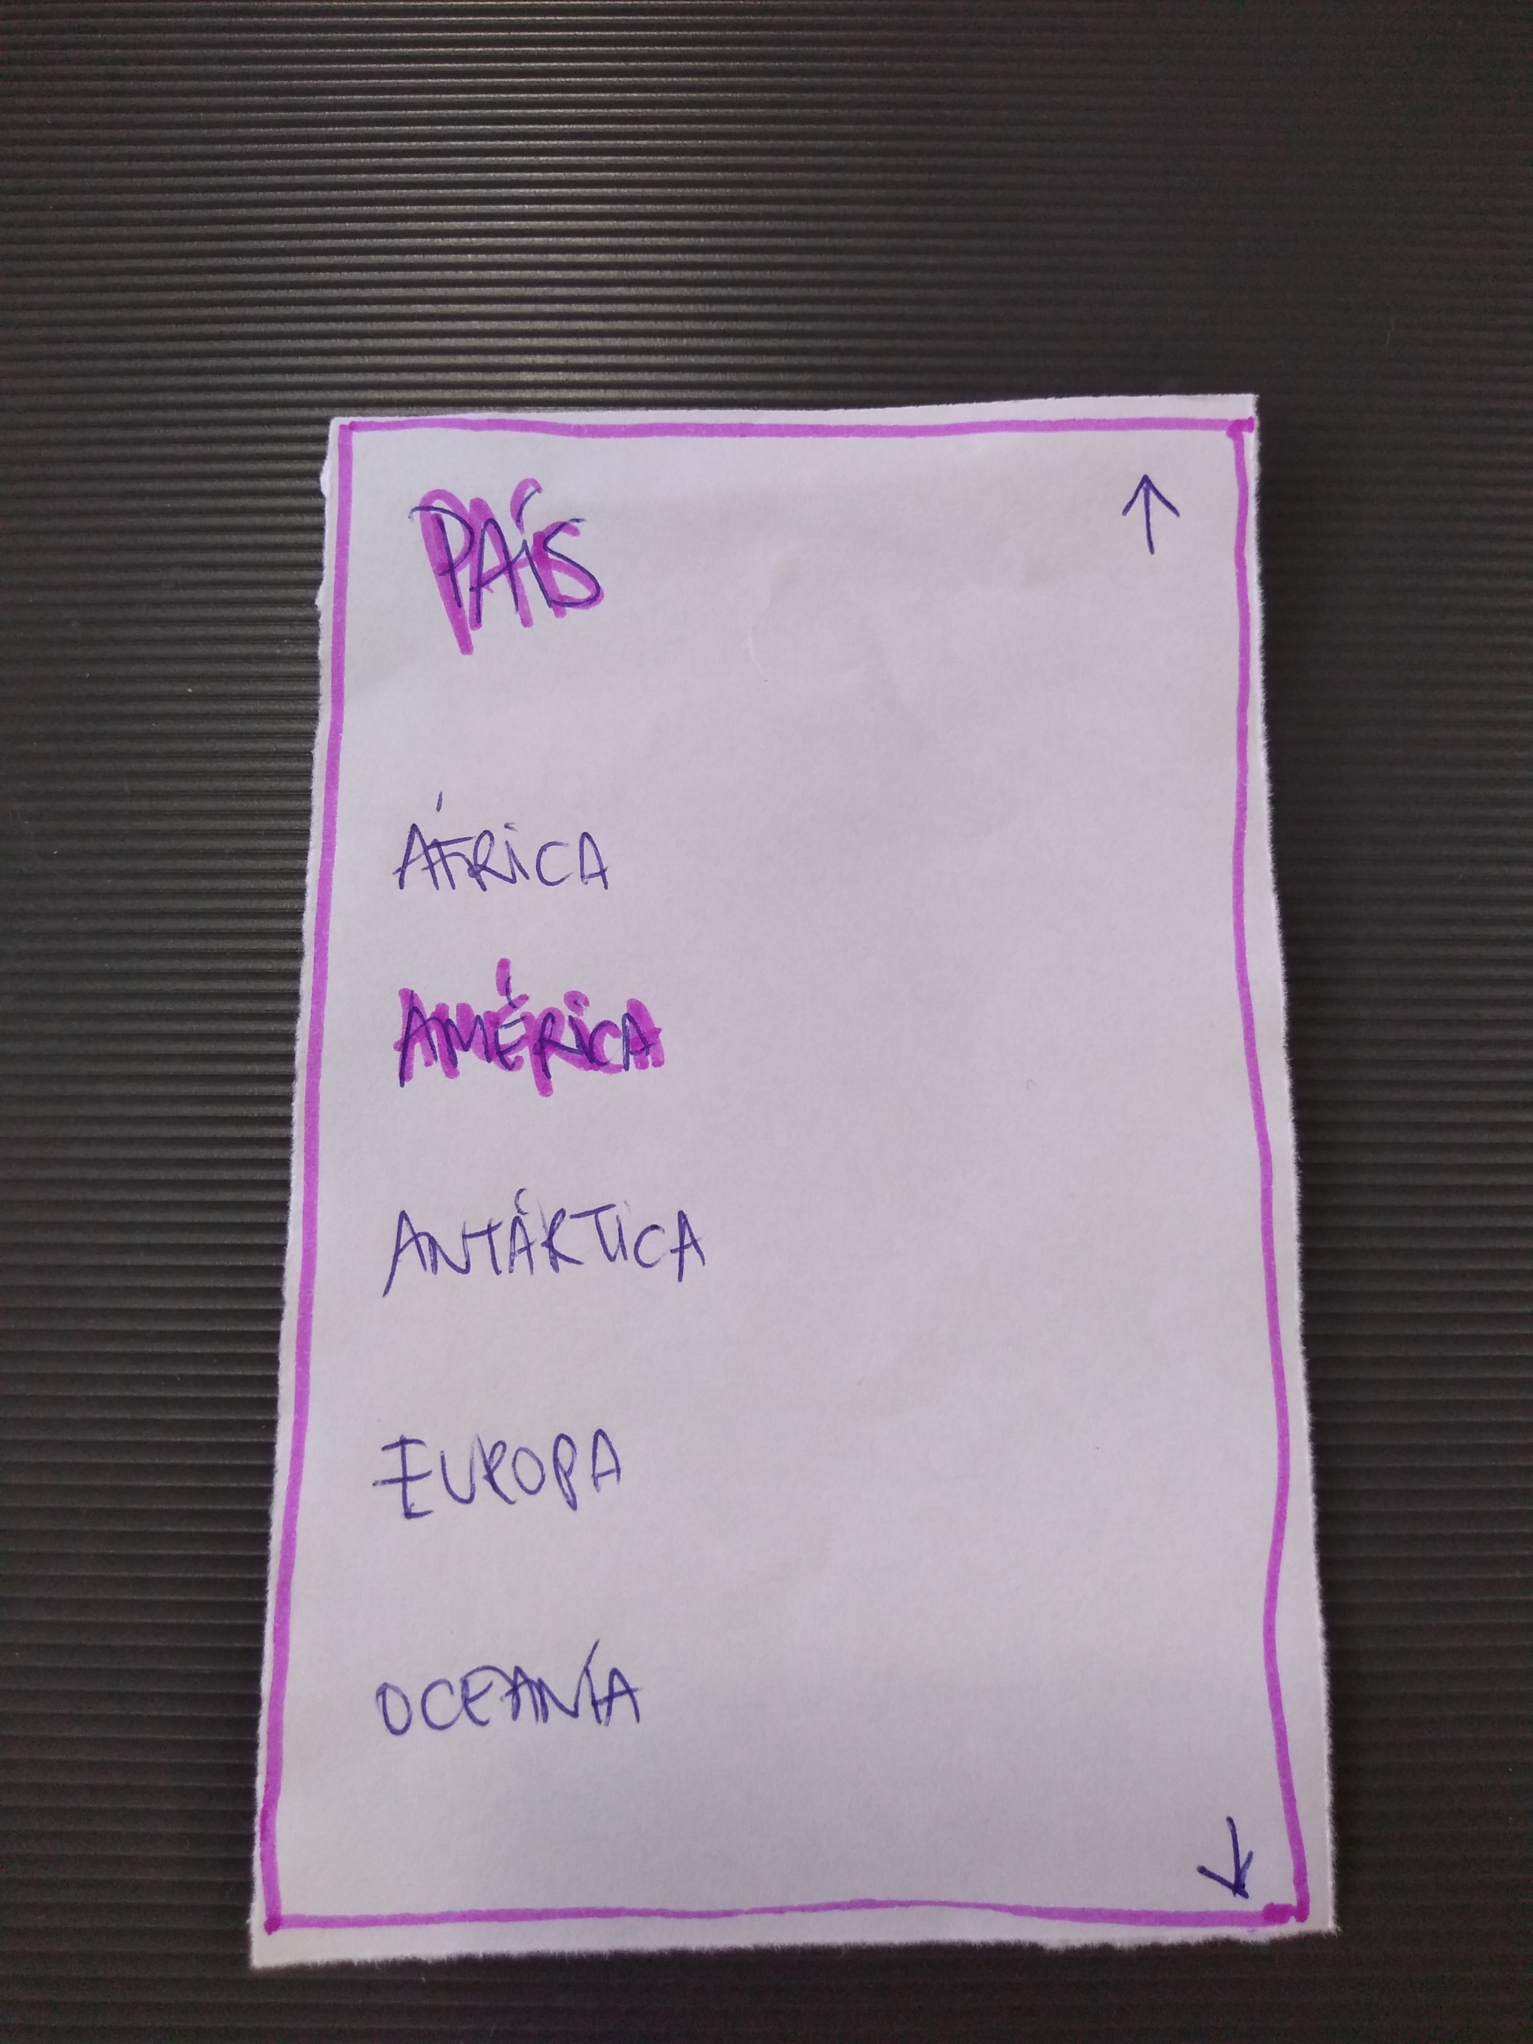 PAÍS
ÁFRICA
AMÉRICA
ANTÁRTICA
EUROPA
OCEANÍA